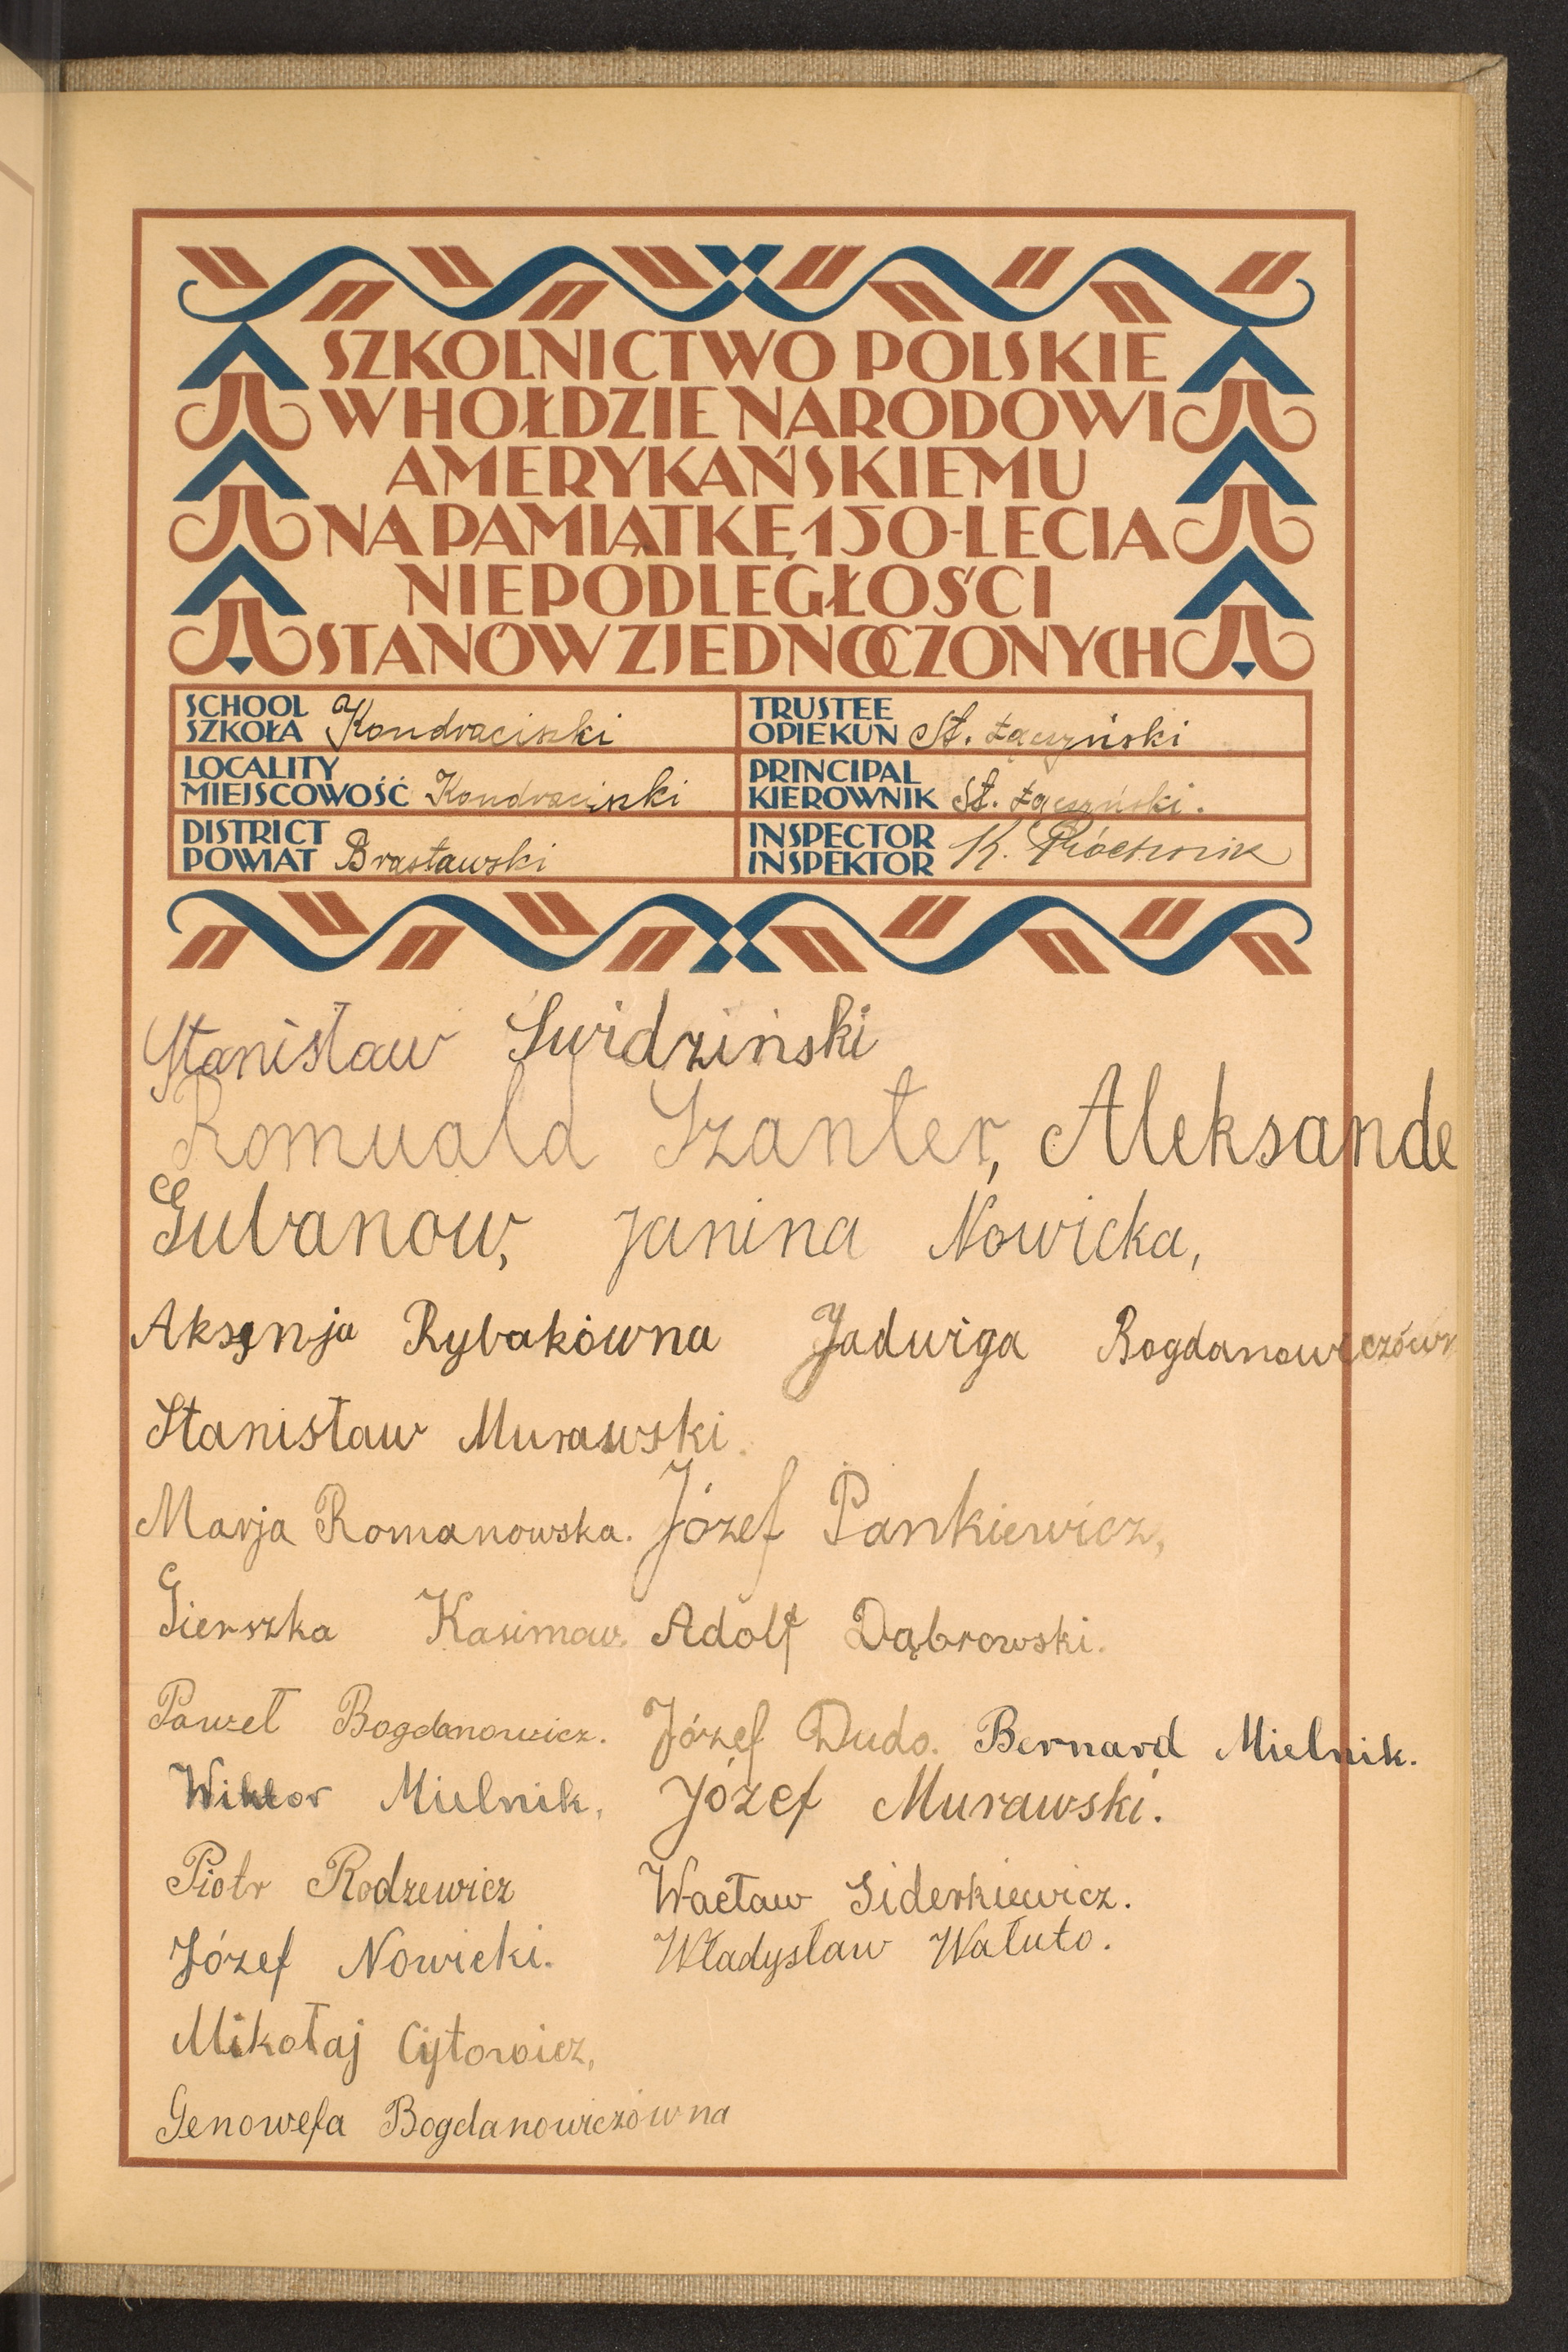 SZKOLNICTWO POLSKIE
W HOŁDZIE NARODOWI
AMERYKAŃSKIEMU
NA PAMIĄTKĘ 150-LECIA
NIEPODLEGŁOŚCI
STANÓW ZJEDNOCZONYCH
SCHOOL
SZKOŁA Kondraciszki
TRUSTEE
OPIEKUN St. Łączyński
LOCALITY
MIEJSCOWOŚĆ Kondraciszki
PRINCIPAL
KIEROWNIK St. Łączyński.
DISTRICT
POWIAT Brasławski
INSPECTOR
INSPEKTOR K. Próchnik
Stanisław Świdziński
Romuald Szanter, Aleksande
Gubanow, Janina Nowicka,
Aksenja Rybakówna Jadwiga Bogdanowiczówn
Stanisław Murawski.
Marja Romanowska. Józef Pankiewicz,
Gierszka Kasimow. Adolf Dąbrowski.
Paweł Bogdanowicz. Józef Dudo. Bernard Mielnik.
Wiktor Mielnik, Józef Murawski.
Piotr Rodzewicz Wacław Siderkiewicz.
Józef Nowicki. Władysław Wałuto.
Mikołaj Cytowicz,
Genowefa Bogdanowiczówna